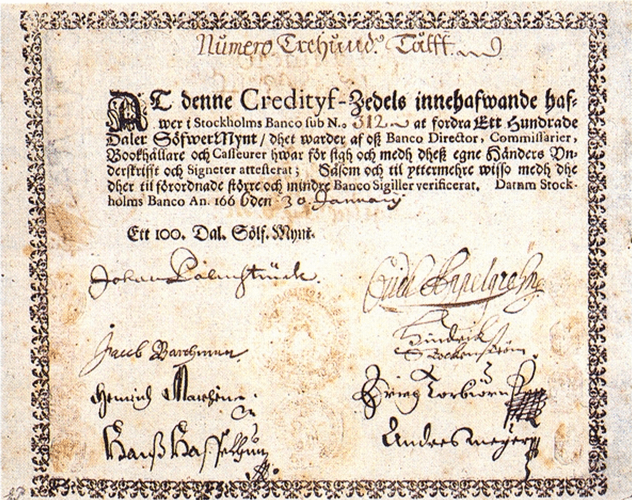 Numero Trehund. Tålff
AT denne Credityf-Zedels innehafwande haf-
wer i Stockholms Banco sub N.o 312 at fordra Ett Hundrade
Daler SölfwerMynt / dhet warder af oß Banco Director, Commissarier,
Bookhållare och Casseurer hwar för sigh och medh dheß egne Händers Vn-
derskrifft och Signeter attesterat; Såsom och til yttermehre wisso medh dhe
dher til förordnade större och mindre Banco Sigiller verificerat. Datum Stock-
holms Banco An. 1666 den 30. January
Ett 100. Dal. Sölf. Mynt.
Johan Palmstruck.
Jacob
Hindrik
Heinrich
Hanß
Andres Meyer